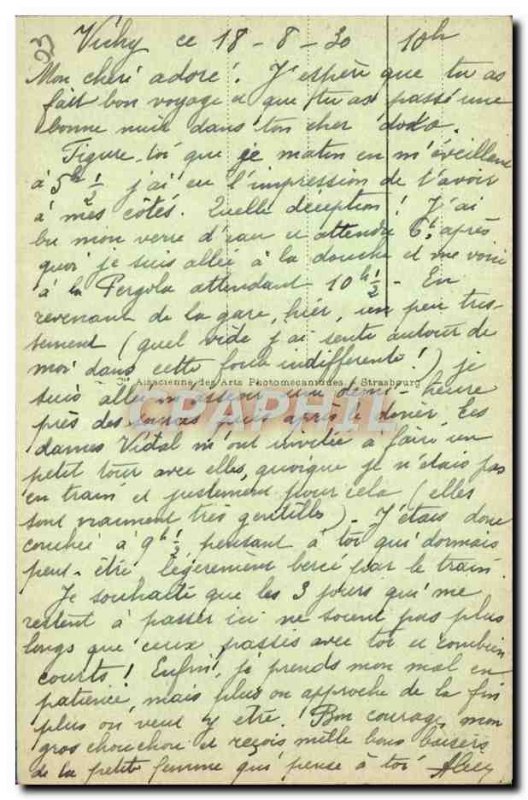 23
Vichy ce 18-8-30 10h
Mon chéri adoré! J'espère que tu as
fait bon voyage et que tu as passé une
bonne nuit dans ton cher dodo.
Figure-toi que ce matin en m'éveillant
à 5h 1/2 j'ai eu l'impression de t'avoir
à mes côtés. Quelle déception! J'ai
bu mon verre d'eau et attendu 6h, après
quoi je suis allée à la douche et me voici
à la Pergola attendant 10h 1/2 - En
revenant de la gare, hier, un peu tris-
tement (quel vide j'ai senti autour de
moi dans cette foule indifférente!) je
Alsacienne des Arts Photomécaniques, Strasbourg
suis allée m'asseoir une demi-heure
près des puis après le dîner les
CARTE
PERGOLA
dames Vidal m'ont invitée à faire un
petit tour avec elles, quoique je n'étais pas
en train et justement pour cela (elles
sont vraiment très gentilles) - J'étais donc
couchée à 9h 1/2, pensant à toi qui dormais
peut-être légèrement bercé par le train.
Je souhaite que les 3 jours qui me
restent à passer ici ne soient pas plus
longs que ceux passés avec toi et combien
courts! Enfin, je prends mon mal en
patience, mais plus on approche de la fin
plus on veut y être! Bon courage mon
gros chouchou et reçois mille bons baisers
de la petite femme qui pense à toi